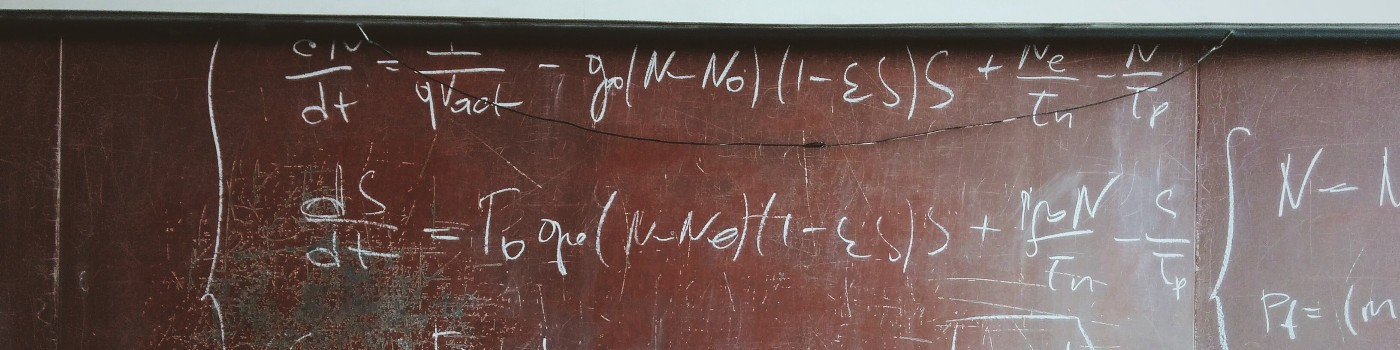 dN/dt = I/(qVact) - g₀(N-N₀)(1-εS)S + Ne/τn - N/τp
dS/dt = Γ₀g₀(N-N₀)(1-εS)S + ΓβN/τn - S/τp
N - N
Pf = (m